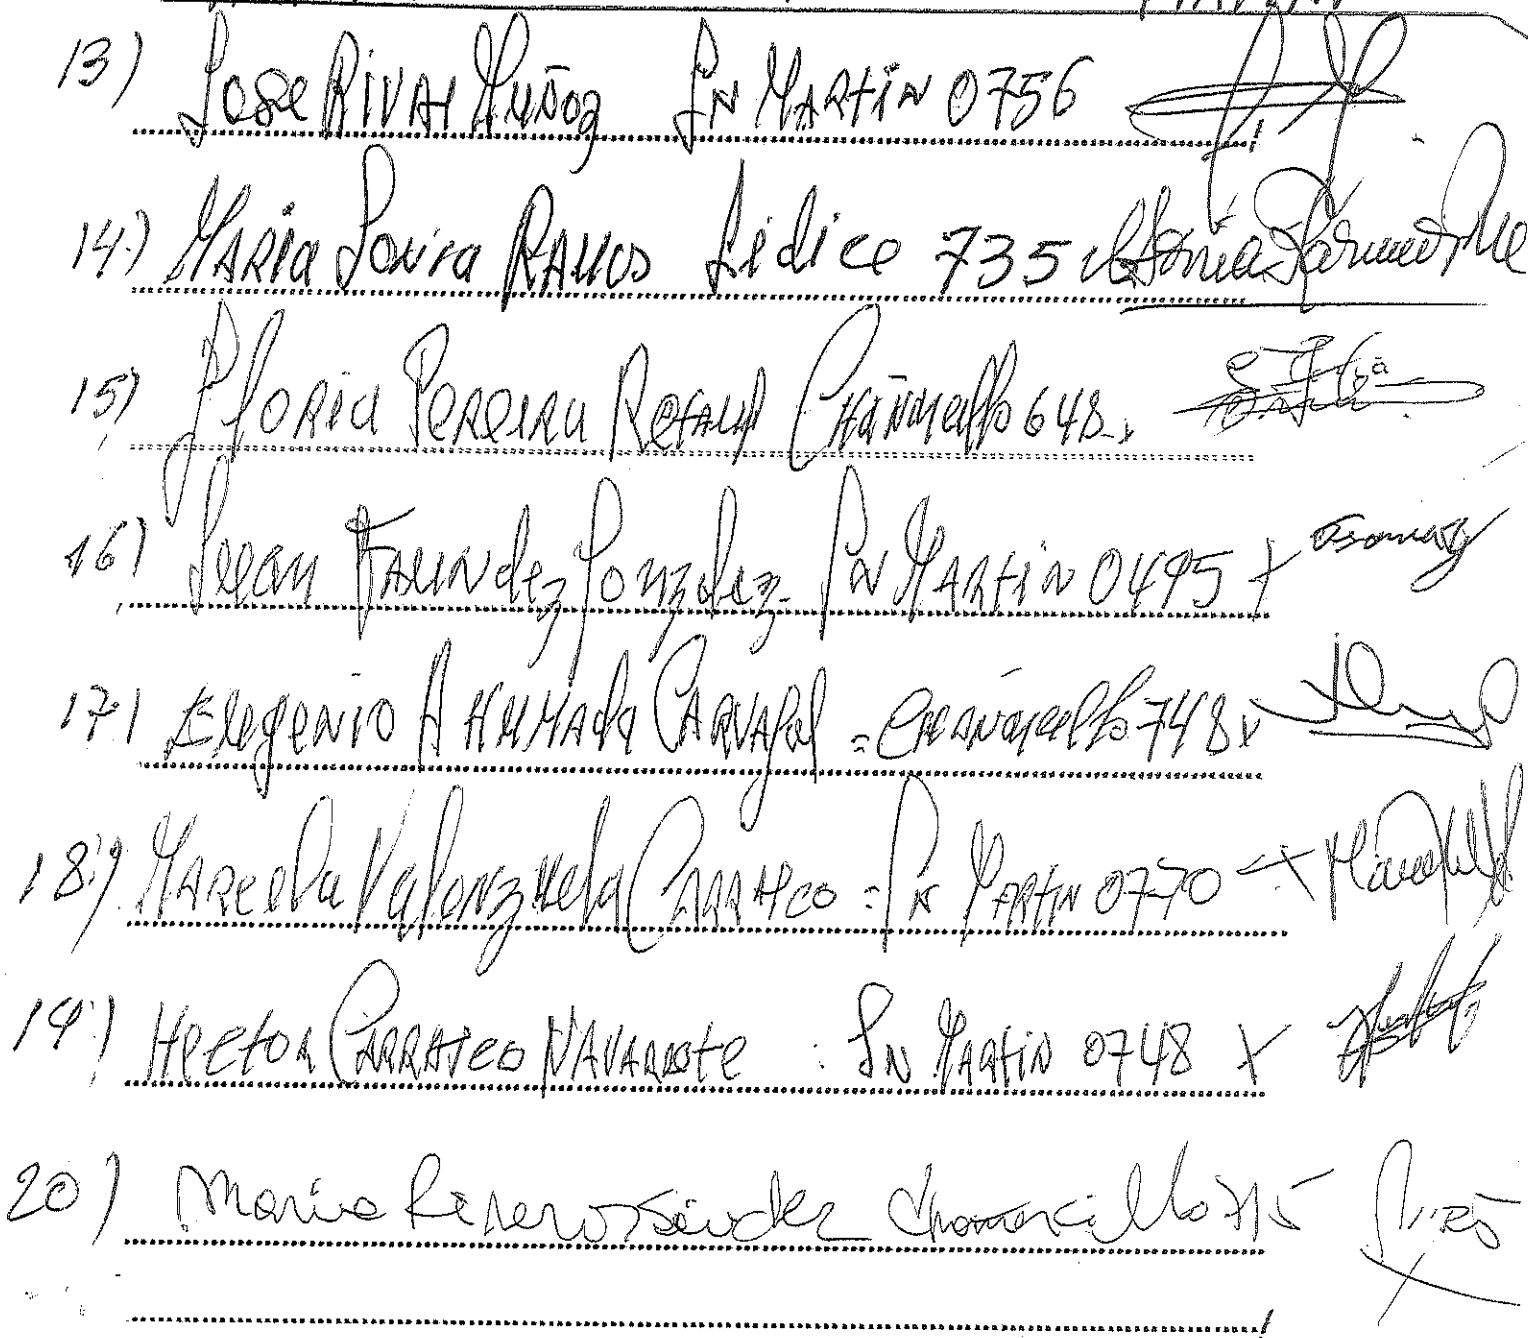 13) Jose Rivas Muñoz Sn Martin 0756
14) Maria Sonia Ramos Lidice 735
15) Gloria Pereira Retamal Chañarcillo 648
16) Juan Faundez Gonzalez Sn Martin 0495 X
17) Eugenio Ahumada Carvajal = Chañarcillo 748 X
18) Marcela Valenzuela Carrasco = Sn Martin 0770 X
19) Hector Carrasco Navarrete : Sn Martin 0748 X
20) Maria Rivero Sandez Chanarcillo 715